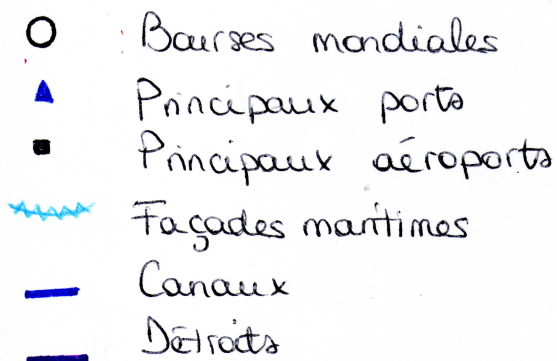 Bourses mondiales
Principaux ports
Principaux aéroports
Façades maritimes
Canaux
Détroits